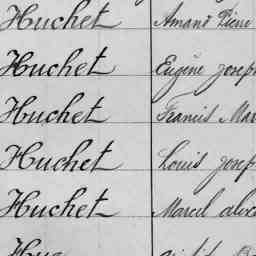 Huchet Amand Pierre
Huchet Eugène Joseph
Huchet Francis Mar
Huchet Louis Josep
Huchet Marcel alex